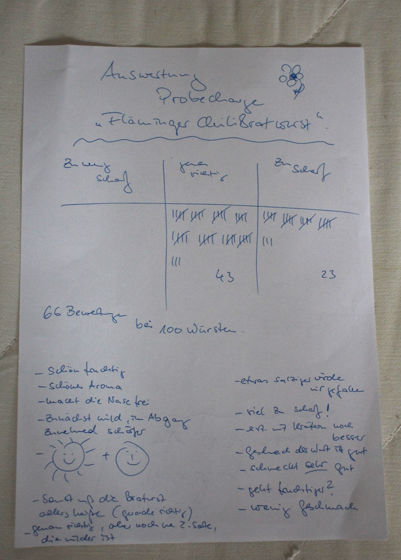 Auswertung
Probecharge
"Fläminger Chilibratwurst"
Zu wenig
scharf
genau
richtig
Zu
scharf
43
23
66 Bewertungen
bei 100 Würsten.
- Schön fruchtig
- schönes Aroma
- macht die Nase frei
- Zunächst mild, im Abgang
zunehmend schärfer
+
- Sonst ist die Bratwurst
(gerade richtig)
- genau richtig, aber noch ne 2. Sorte,
die milder ist
- etwas salziger würde
mir gefallen
- viel zu scharf!
- erst mit Kräutern noch
besser
- Geschmack der Wurst ist gut
- schmeckt sehr gut
- geht fruchtiger?
- wenig Geschmack